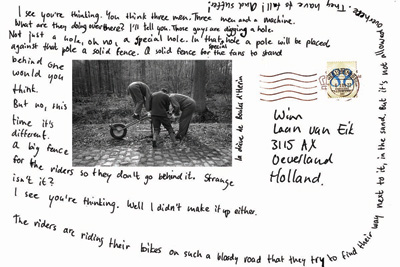 I see you're thinking. You think three men. Three men and a machine.
What are they doing over there? I'll tell you. Those guys are digging a hole.
Not just a hole, oh no, a special hole. In that hole a pole will be placed
against that pole a solid fence. A solid
special
fence for the fans to stand
behind one
would you
think.
But no, this
time it's
different.
A big fence
for the riders so they don't go behind it. Strange
isn't it?
I see you're thinking. Well I didn't make it up either.
The riders are riding their bikes on such a bloody road that they try to find their way next to it, in the sand. But it's not allowed Overhere. They have to fall! And suffer!
la drève de Boules d'Hérin
Wim
Laan van Eik
3115 AX
Oeverland
Holland.